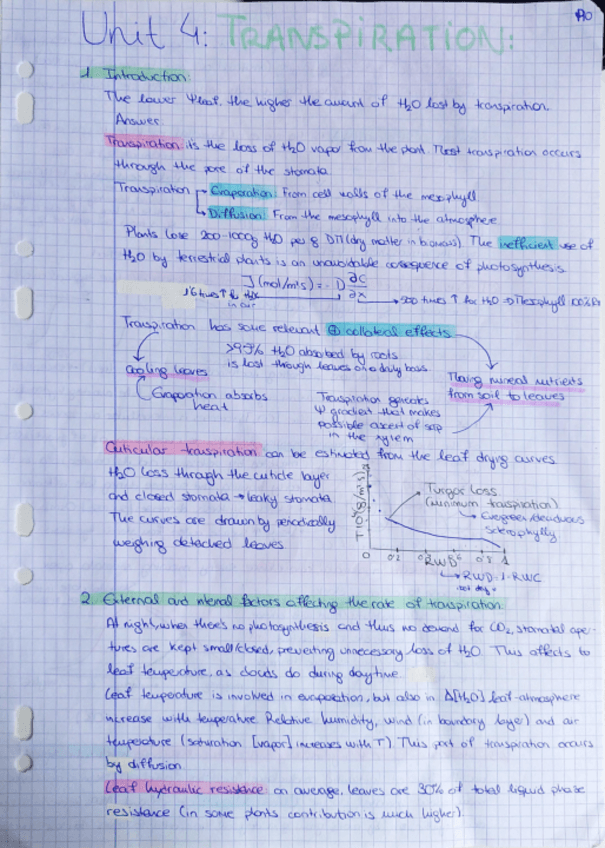 Unit 4: TRANSPIRATION:
1 Introduction:
The lower Ψleaf, the higher the amount of H2O lost by transpiration.
Answer.
Transpiration: it's the loss of H2O vapor from the plant. Most transpiration occurs
through the pore of the stomata.
Transpiration Evaporation: From cell walls of the mesophyll
Diffusion: From the mesophyll into the atmosphere
Plants lose 200-1000g H2O per g DM (dry matter in biomass). The inefficient use of
H2O by terrestrial plants is an unavoidable consequence of photosynthesis.
J (mol/m²s) = - D ∂C/∂x
1'6 times ↑ for H2O
in air
500 times ↑ for H2O → Mesophyll 100% RH
Transpiration has some relevant ⊕ collateral effects
>95% H2O absorbed by roots
is lost through leaves on a daily basis
Cooling leaves
Evaporation absorbs
heat
Transpiration generates
Ψ gradient that makes
possible ascent of sap
in the xylem
mineral nutrients
from soil to leaves
Cuticular transpiration can be estimated from the leaf drying curves.
H2O loss through the cuticle layer
and closed stomata → leaky stomata
The curves are drawn by periodically
weighing detached leaves
Turgor loss
(minimum transpiration)
Evergreen/deciduous
Sclerophylly
0 0'2 0'8 1
RWD
RWD = 1-RWC
2 External and internal factors affecting the rate of transpiration.
At night, when there's no photosynthesis and thus no demand for CO2, stomatal aper-
tures are kept small/closed, preventing unnecessary loss of H2O. This affects to
leaf temperature, as clouds do during daytime.
Leaf temperature is involved in evaporation, but also in Δ[H2O] leaf-atmosphere
increase with temperature. Relative humidity, wind (in boundary layer) and air
temperature (saturation [vapor] increases with T). This part of transpiration occurs
by diffusion.
Leaf hydraulic resistance: on average, leaves are 30% of total liquid phase
resistance (in some plants contribution is much higher).